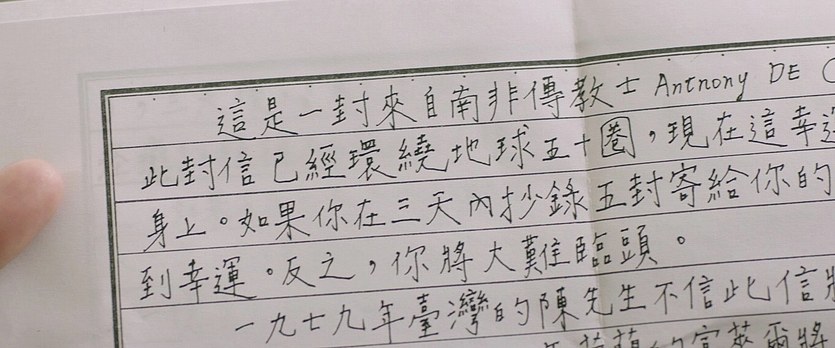 這是一封來自南非傳教士 Antnony DE
此封信已經環繞地球五十圈，現在這幸運
身上。如果你在三天內抄錄五封寄給你的
到幸運。反之，你將大難臨頭。
一九七九年臺灣的陳先生不信此信將